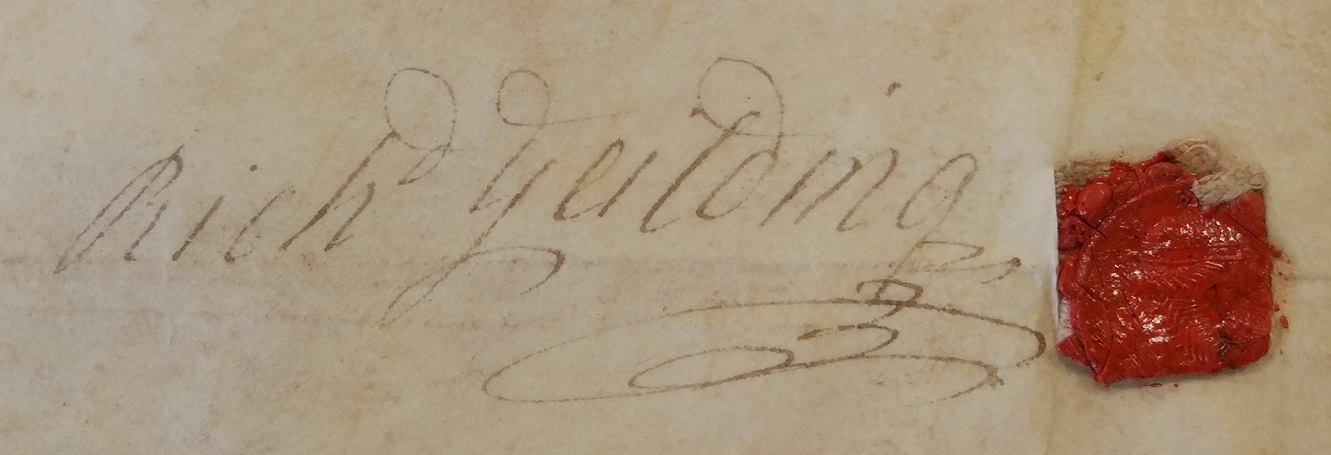 Richd Yeilding